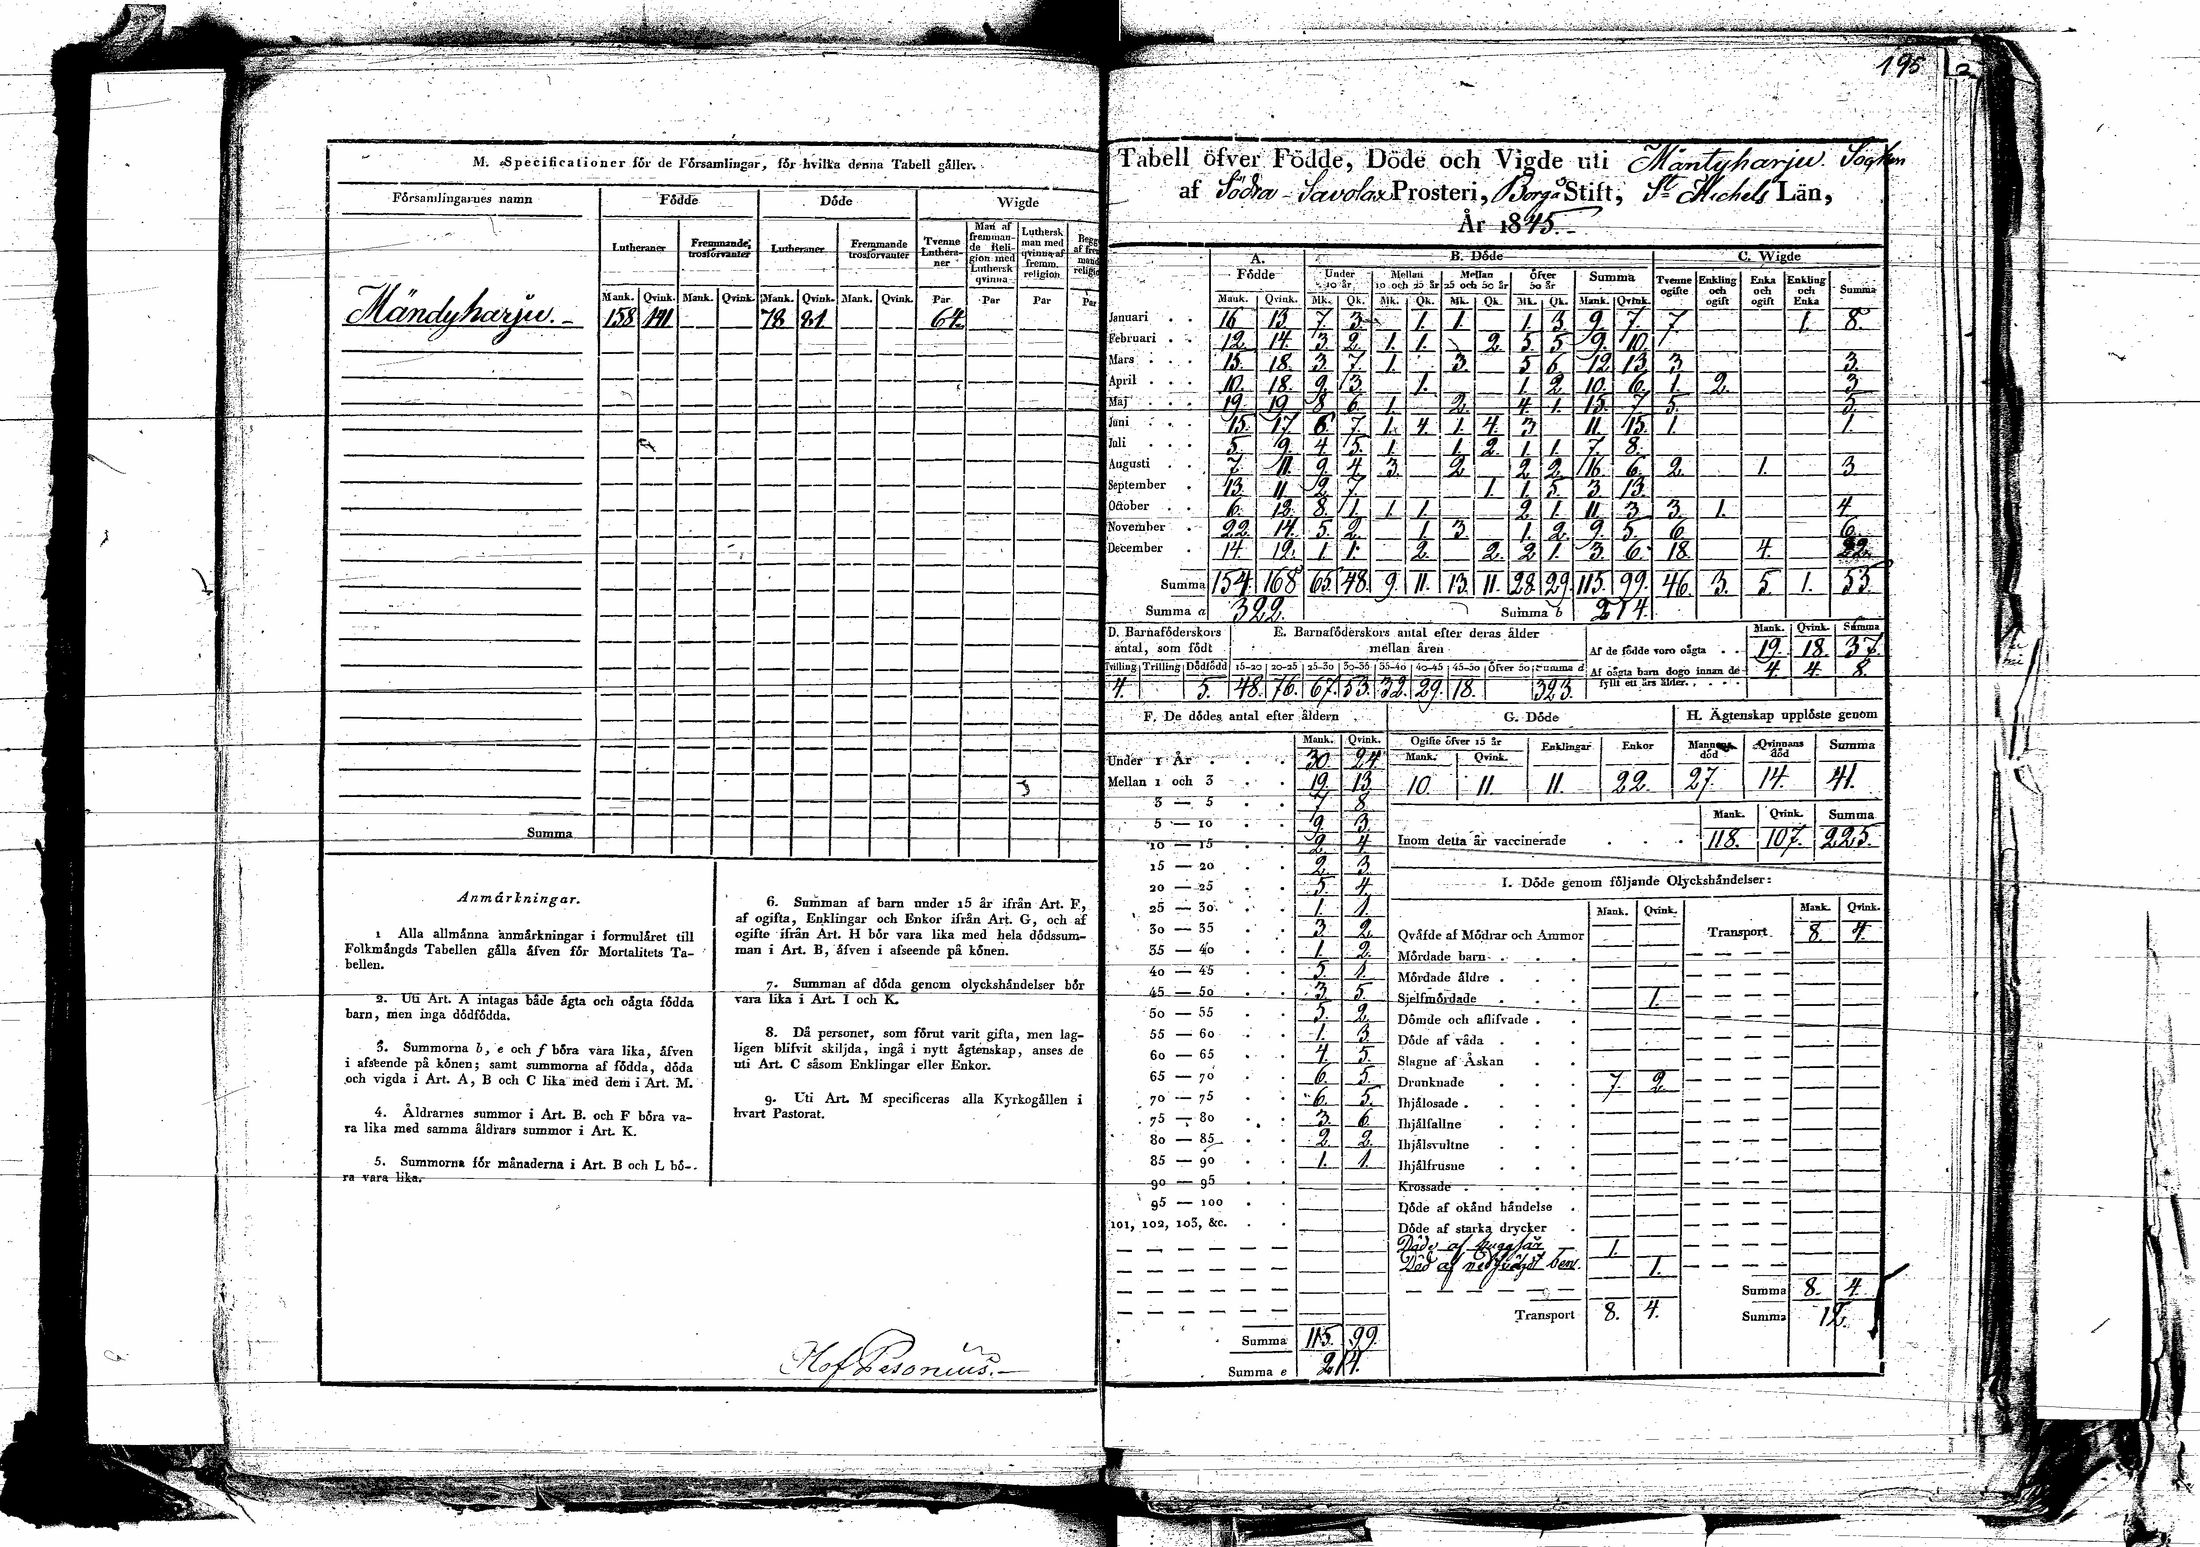 195
M. Specificationer för de Församlingar, för hvilka denna Tabell gäller.
Församlingarnes namn Födde Döde Wigde
Lutheraner Fremmande trosförvanter Lutheraner Fremmande trosförvanter Tvenne Lutheraner Man af fremmande Religion med Luthersk qvinna Luthersk man med qvinna af fremm. religion
Mank. Qvink. Mank. Qvink. Mank. Qvink. Mank. Qvink. Par Par Par Par
Mändyharju. 158 141 78 81 64
Summa
Anmärkningar.
1 Alla allmänna anmärkningar i formuläret till
Folkmängds Tabellen gälla äfven för Mortalitets Ta-
bellen.
2. Uti Art. A intagas både ägta och oägta födda
barn, men inga dödfödda.
3. Summorna b, e och f böra vara lika, äfven
i afseende på könen; samt summorna af födda, döda
och vigda i Art. A, B och C lika med dem i Art. M.
4. Åldrarnes summor i Art. B. och F böra va-
ra lika med samma åldrars summor i Art. K.
5. Summorna för månaderna i Art. B och L bö-
ra vara lika.
6. Summan af barn under 15 år ifrån Art. F,
af ogifta, Enklingar och Enkor ifrån Art. G, och af
ogifte ifrån Art. H bör vara lika med hela dödssum-
man i Art. B, äfven i afseende på könen.
7. Summan af döda genom olyckshändelser bör
vara lika i Art. I och K.
8. Då personer, som förut varit gifta, men lag-
ligen blifvit skiljda, ingå i nytt ägtenskap, anses de
uti Art. C såsom Enklingar eller Enkor.
9. Uti Art. M specificeras alla Kyrkogällen i
hvart Pastorat.
Hof Pesonius.
Tabell öfver Födde, Döde och Vigde uti Mäntyharju Sockn
af Södra-Savolax Prosteri, Borgå Stift, St Michels Län,
År 1845.
A. Födde B. Döde C. Wigde
Under 10 år Mellan 10 och 25 år Mellan 25 och 50 år Öfver 50 år Summa Tvenne ogifte Enkling och ogift Enka och ogift Enkling och Enka Summa
Mank. Qvink. Mk. Qk. Mk. Qk. Mk. Qk. Mk. Qk. Mank. Qvink.
Januari 16 13 7. 3. 1. 1. 1. 3. 9. 7. 7. 1. 8.
Februari 12. 14. 3. 2. 1. 1. 2. 5 5 9. 10.
Mars 15. 18. 3. 7. 1. 3. 5 6. 12 13 3 3.
April 10. 18. 9. 3. 1. 1. 2. 10. 6. 1. 2. 3
Maj 19. 19. 8 6. 1. 2. 4. 1. 15. 7. 5. 5.
Juni 15. 17. 6. 7. 1. 4. 1. 4. 3 11. 15. 1. 1.
Juli 5. 9. 4. 5. 1. 1. 2. 1. 1. 7. 8.
Augusti 7. 11. 9. 4. 3. 2 2 2. 16. 6. 2. 1. 3
September 13. 11 2. 7. 1. 1. 5. 3. 13.
October 6. 12. 8. 1. 1. 1. 2. 1. 11. 3 3. 1. 4.
November 22. 14. 5. 2. 1. 3. 1. 2. 9. 5. 6. 6.
December 14. 12. 1. 1. 2. 2. 2 1. 3. 6. 18. 4. 22.
Summa 154. 168 65. 48. 9. 11. 13. 11. 28. 29. 115. 99. 46. 3. 5. 1. 55.
Summa a 322. Summa b 214.
D. Barnaföderskors antal, som födt E. Barnaföderskors antal efter deras ålder mellan åren Mank. Qvink. Summa
Af de födde voro oägta 19. 18. 37.
Tvilling Trilling Dödfödd 15-20 20-25 25-30 30-35 35-40 40-45 45-50 Öfver 50 Summa d
4. 5. 48. 76. 67. 53. 32. 29. 18. 323.
Af oägta barn dogo innan de fyllt ett års ålder 4. 4. 8.
F. De dödes antal efter åldern
Mank. Qvink.
Under 1 År 30. 24.
Mellan 1 och 3 19. 13.
3 — 5 7 8.
5 — 10 9. 3.
10 — 15 2. 4.
15 — 20 2. 3
20 — 25 5. 4.
25 — 30 1. 1.
30 — 35 3. 2.
35 — 40 1. 2.
40 — 45 5. 1.
45 — 50 3. 5.
50 — 55 5. 2.
55 — 60 1. 3.
60 — 65 4. 5.
65 — 70 6. 5.
70 — 75 6. 5.
75 — 80 3. 6.
80 — 85 2. 2.
85 — 90 1. 1.
90 — 95
95 — 100
101, 102, 103, &c.
Summa 115. 99.
Summa e 214.
G. Döde H. Ägtenskap upplöste genom
Ogifte öfver 15 år Enklingar Enkor Mannens död Qvinnans död Summa
Mank. Qvink.
10. 11 11. 22. 27. 14. 41.
Mank. Qvink. Summa
Inom detta år vaccinerade 118. 107. 225.
I. Döde genom följande Olyckshändelser:
Mank. Qvink. Mank. Qvink.
Qväfde af Mödrar och Ammor Transport 8. 4.
Mördade barn
Mördade äldre
Sjelfmördade 1.
Dömde och aflifvade
Döde af våda
Slagne af Åskan
Drunknade 7. 2.
Ihjälosade
Ihjälfallne
Ihjälsvultne
Ihjälfrusne
Krossade
Döde af okänd händelse
Döde af starka drycker
Döde af huggsår 1.
Död af ben. 1.
Summa 8. 4.
Transport 8. 4. Summa 12.